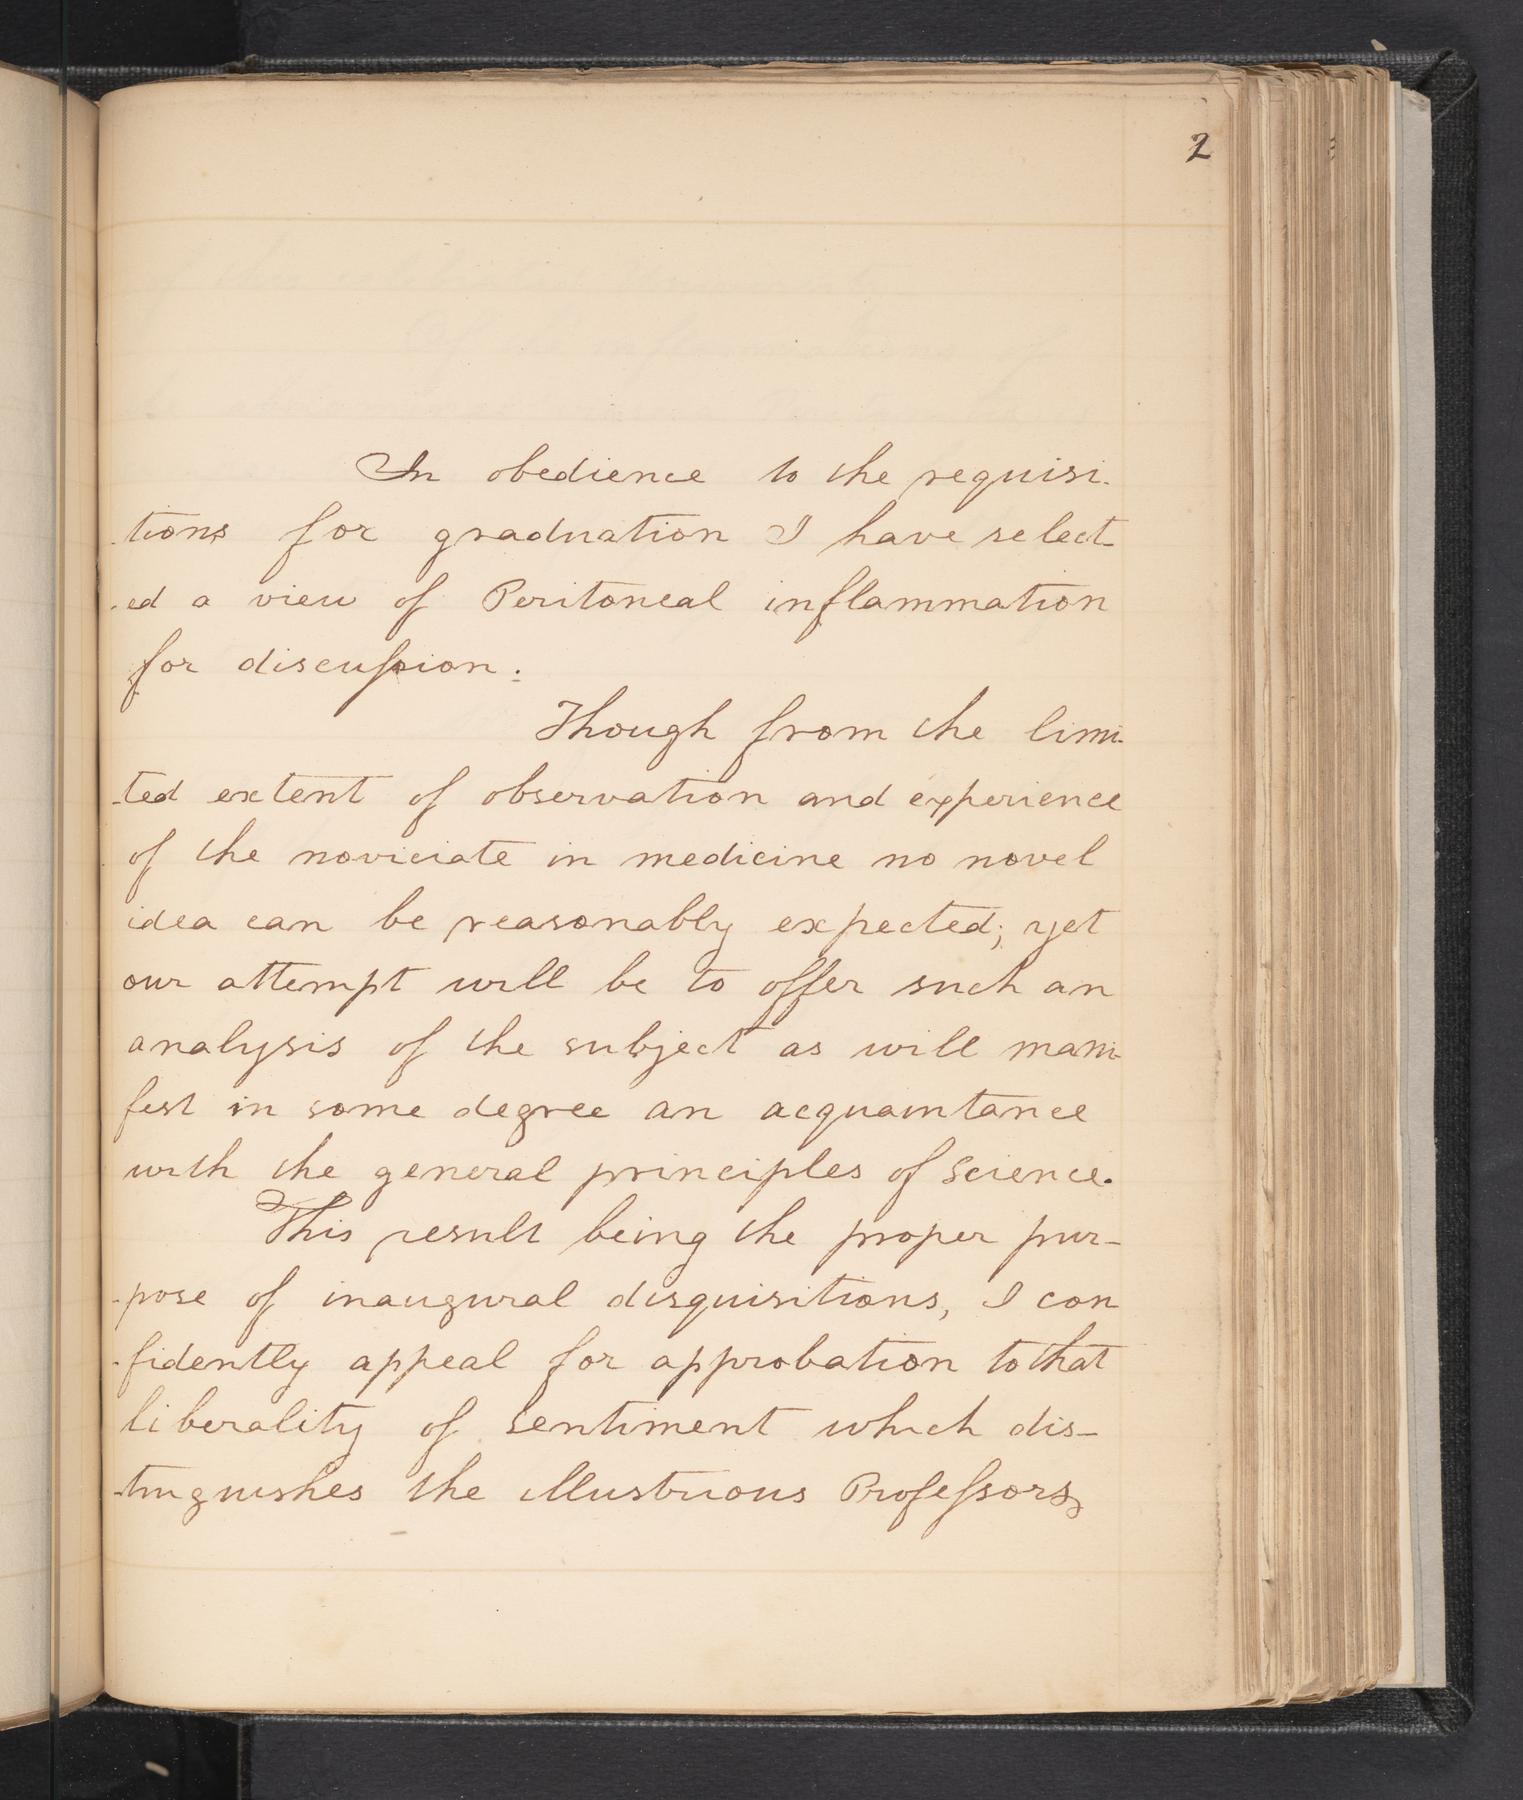 2
In obedience to the requisi-
-tions for graduation I have select-
-ed a view of Peritoneal inflammation
for discuſsion.
Though from the limi-
-ted extent of observation and experience
of the noviciate in medicine no novel
idea can be reasonably expected; yet
our attempt will be to offer such an
analysis of the subject as will mani-
fest in some degree an acquaintance
with the general principles of Science.
This result being the proper pur-
-pose of inaugural disquisitions, I con
-fidently appeal for approbation to that
liberality of sentiment which dis-
-tinguishes the illustrious Profeſsors,